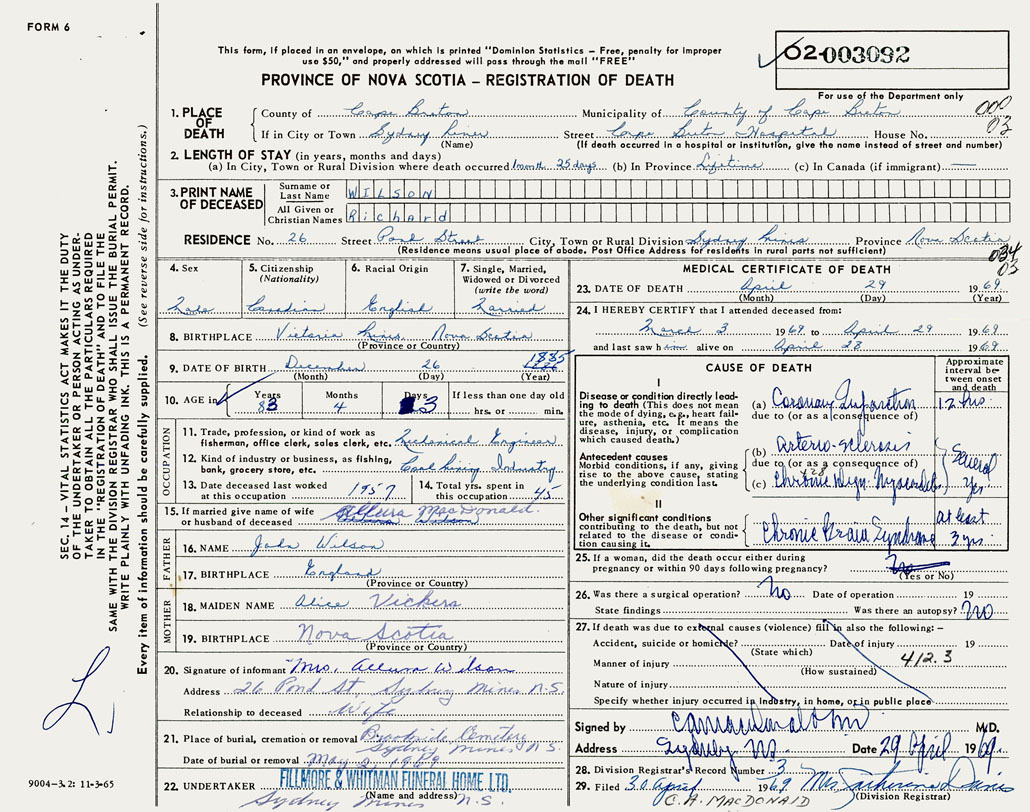 FORM 6
This form, if placed in an envelope, on which is printed "Dominion Statistics – Free, penalty for improper
use $50," and properly addressed will pass through the mail "FREE"
PROVINCE OF NOVA SCOTIA – REGISTRATION OF DEATH
02-003092
For use of the Department only
1. PLACE OF DEATH
County of Cape Breton Municipality of County of Cape Breton
If in City or Town Sydney Mines Street Cape Breton Hospital House No.
(Name) (If death occurred in a hospital or institution, give the name instead of street and number)
2. LENGTH OF STAY (in years, months and days)
(a) In City, Town or Rural Division where death occurred 1 month 25 days (b) In Province Lifetime (c) In Canada (if immigrant) —
3. PRINT NAME OF DECEASED
Surname or Last Name WILSON
All Given or Christian Names Richard
RESIDENCE No. 26 Street Pond Street City, Town or Rural Division Sydney Mines Province Nova Scotia
(Residence means usual place of abode. Post Office Address for residents in rural parts not sufficient)
034
03
4. Sex Male
5. Citizenship (Nationality) Canadian
6. Racial Origin English
7. Single, Married, Widowed or Divorced (write the word) Married
8. BIRTHPLACE Victoria Mines, Nova Scotia
(Province or Country)
9. DATE OF BIRTH December 26 1885
(Month) (Day) (Year)
10. AGE in Years 83 Months 4 Days 3 If less than one day old
hrs. or min.
OCCUPATION
11. Trade, profession, or kind of work as
fisherman, office clerk, sales clerk, etc. Mechanical Engineer
12. Kind of industry or business, as fishing,
bank, grocery store, etc. Coal Mining Industry
13. Date deceased last worked
at this occupation 1957
14. Total yrs. spent in
this occupation 45
15. If married give name of wife
or husband of deceased MacDonald.
FATHER
16. NAME John Wilson
17. BIRTHPLACE England
(Province or Country)
MOTHER
18. MAIDEN NAME Alice Vickers
19. BIRTHPLACE Nova Scotia
(Province or Country)
20. Signature of informant Mrs. Wilson
Address 26 Pond St, Sydney Mines N.S.
Relationship to deceased Wife
21. Place of burial, cremation or removal Brookside Cemetery
Sydney Mines N.S.
Date of burial or removal May 2, 1969
22. UNDERTAKER FILLMORE & WHITMAN FUNERAL HOME LTD.
(Name and address)
Sydney Mines N.S.
MEDICAL CERTIFICATE OF DEATH
23. DATE OF DEATH April 29 1969
(Month) (Day) (Year)
24. I HEREBY CERTIFY that I attended deceased from:
March 3 1969 to April 29 1969
and last saw him alive on April 28 1969
CAUSE OF DEATH
Approximate interval between onset and death
I
Disease or condition directly leading to death (This does not mean the mode of dying, e.g., heart failure, asthenia, etc. It means the disease, injury, or complication which caused death.)
(a) Coronary Infarction 12 hrs
due to (or as a consequence of)
Antecedent causes
Morbid conditions, if any, giving rise to the above cause, stating the underlying condition last.
(b) Arterio-sclerosis
due to (or as a consequence of)
(c) Chronic Myocarditis
Several yrs
II
Other significant conditions
contributing to the death, but not related to the disease or condition causing it.
Chronic Brain Syndrome at least 3 yrs.
25. If a woman, did the death occur either during
pregnancy or within 90 days following pregnancy? No
(Yes or No)
26. Was there a surgical operation? No Date of operation 19
State findings Was there an autopsy? No
27. If death was due to external causes (violence) fill in also the following: –
Accident, suicide or homicide? Date of injury 19
(State which)
Manner of injury 412.3
(How sustained)
Nature of injury
Specify whether injury occurred in industry, in home, or in public place
Signed by M.D.
Address Sydney N.S. Date 29 April 1969.
28. Division Registrar's Record Number 3
29. Filed 30 April 1969 Mrs
(Division Registrar)
C. A. MACDONALD
SEC. 14 – VITAL STATISTICS ACT MAKES IT THE DUTY
OF THE UNDERTAKER OR PERSON ACTING AS UNDER-
TAKER TO OBTAIN ALL THE PARTICULARS REQUIRED
IN THE "REGISTRATION OF DEATH" AND TO FILE THE
SAME WITH THE DIVISION REGISTRAR WHO SHALL ISSUE THE BURIAL PERMIT.
WRITE PLAINLY WITH UNFADING INK. THIS IS A PERMANENT RECORD.
Every item of information should be carefully supplied. (See reverse side for instructions.)
9004-3.2: 11-3-65